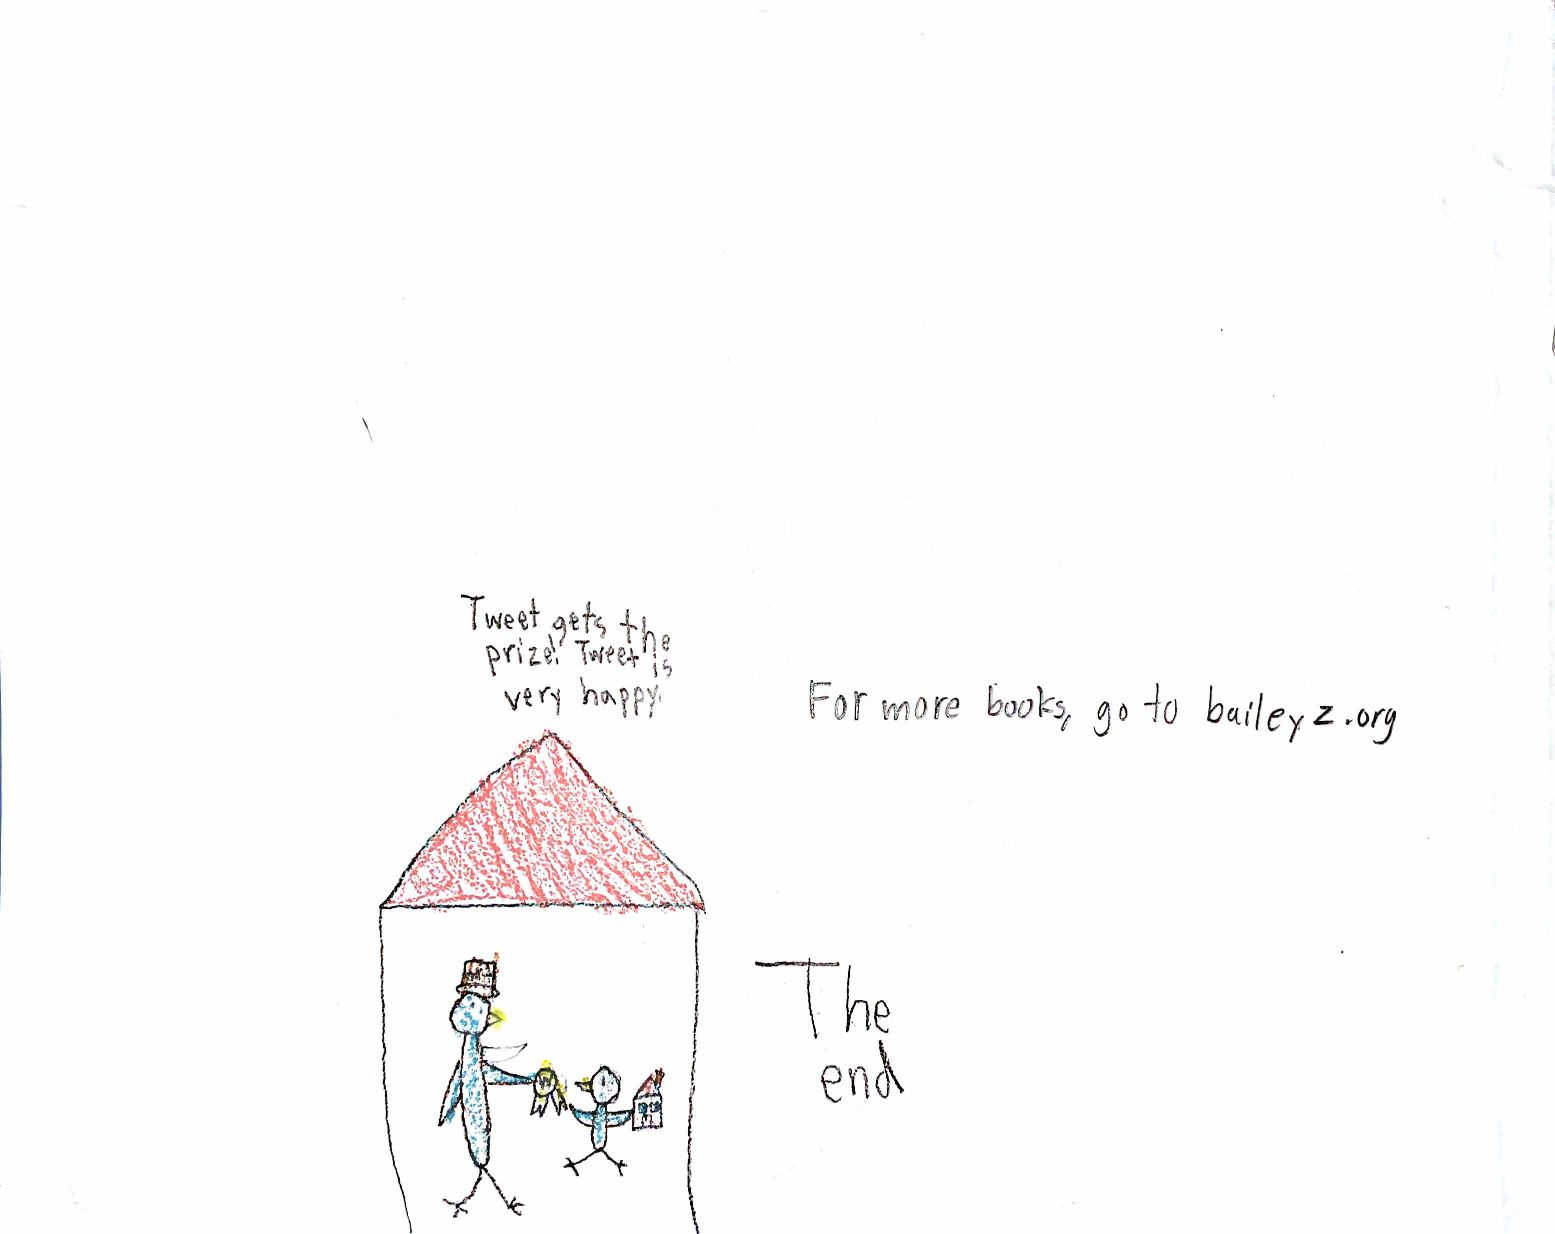 Tweet gets the
prize! Tweet is
very happy.
For more books, go to baileyz.org
The
end